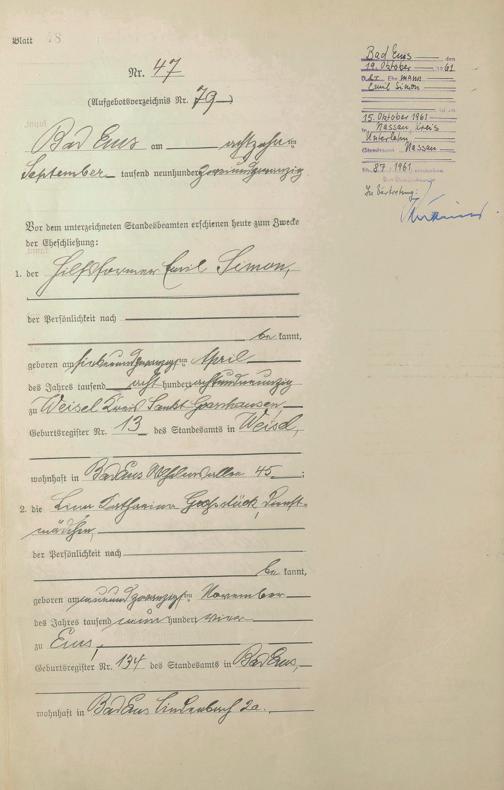 Blatt 78
Nr. 47
(Aufgebotsverzeichnis Nr. 79)
Bad Ems am achtzehnten
September tausend neunhundert
Vor dem unterzeichneten Standesbeamten erschienen heute zum Zwecke
der Eheschließung:
1. der Hilfsformer Emil Simon,
der Persönlichkeit nach
be kannt,
geboren am siebenundzwanzigsten April
des Jahres tausend acht hundert achtundneunzig
zu Weisel Kreis Sankt Goarshausen
Geburtsregister Nr. 13 des Standesamts in Weisel,
wohnhaft in Bad Ems 45 ;
2. die Katharina Dienst-
mädchen,
der Persönlichkeit nach
be kannt,
geboren am neunundzwanzigsten November
des Jahres tausend neun hundert
zu Ems,
Geburtsregister Nr. 134 des Standesamts in Bad Ems,
wohnhaft in Bad Ems Lindenbach 2a.
Bad Ems den
19. Oktober 1961
D er Ehemann
Emil Simon
ist am
15. Oktober 1961
in Nassau, Kreis
Unterlahn
Standesamt Nassau
Nr. 87/1961 verstorben
Der Standesbeamte
In Vertretung: